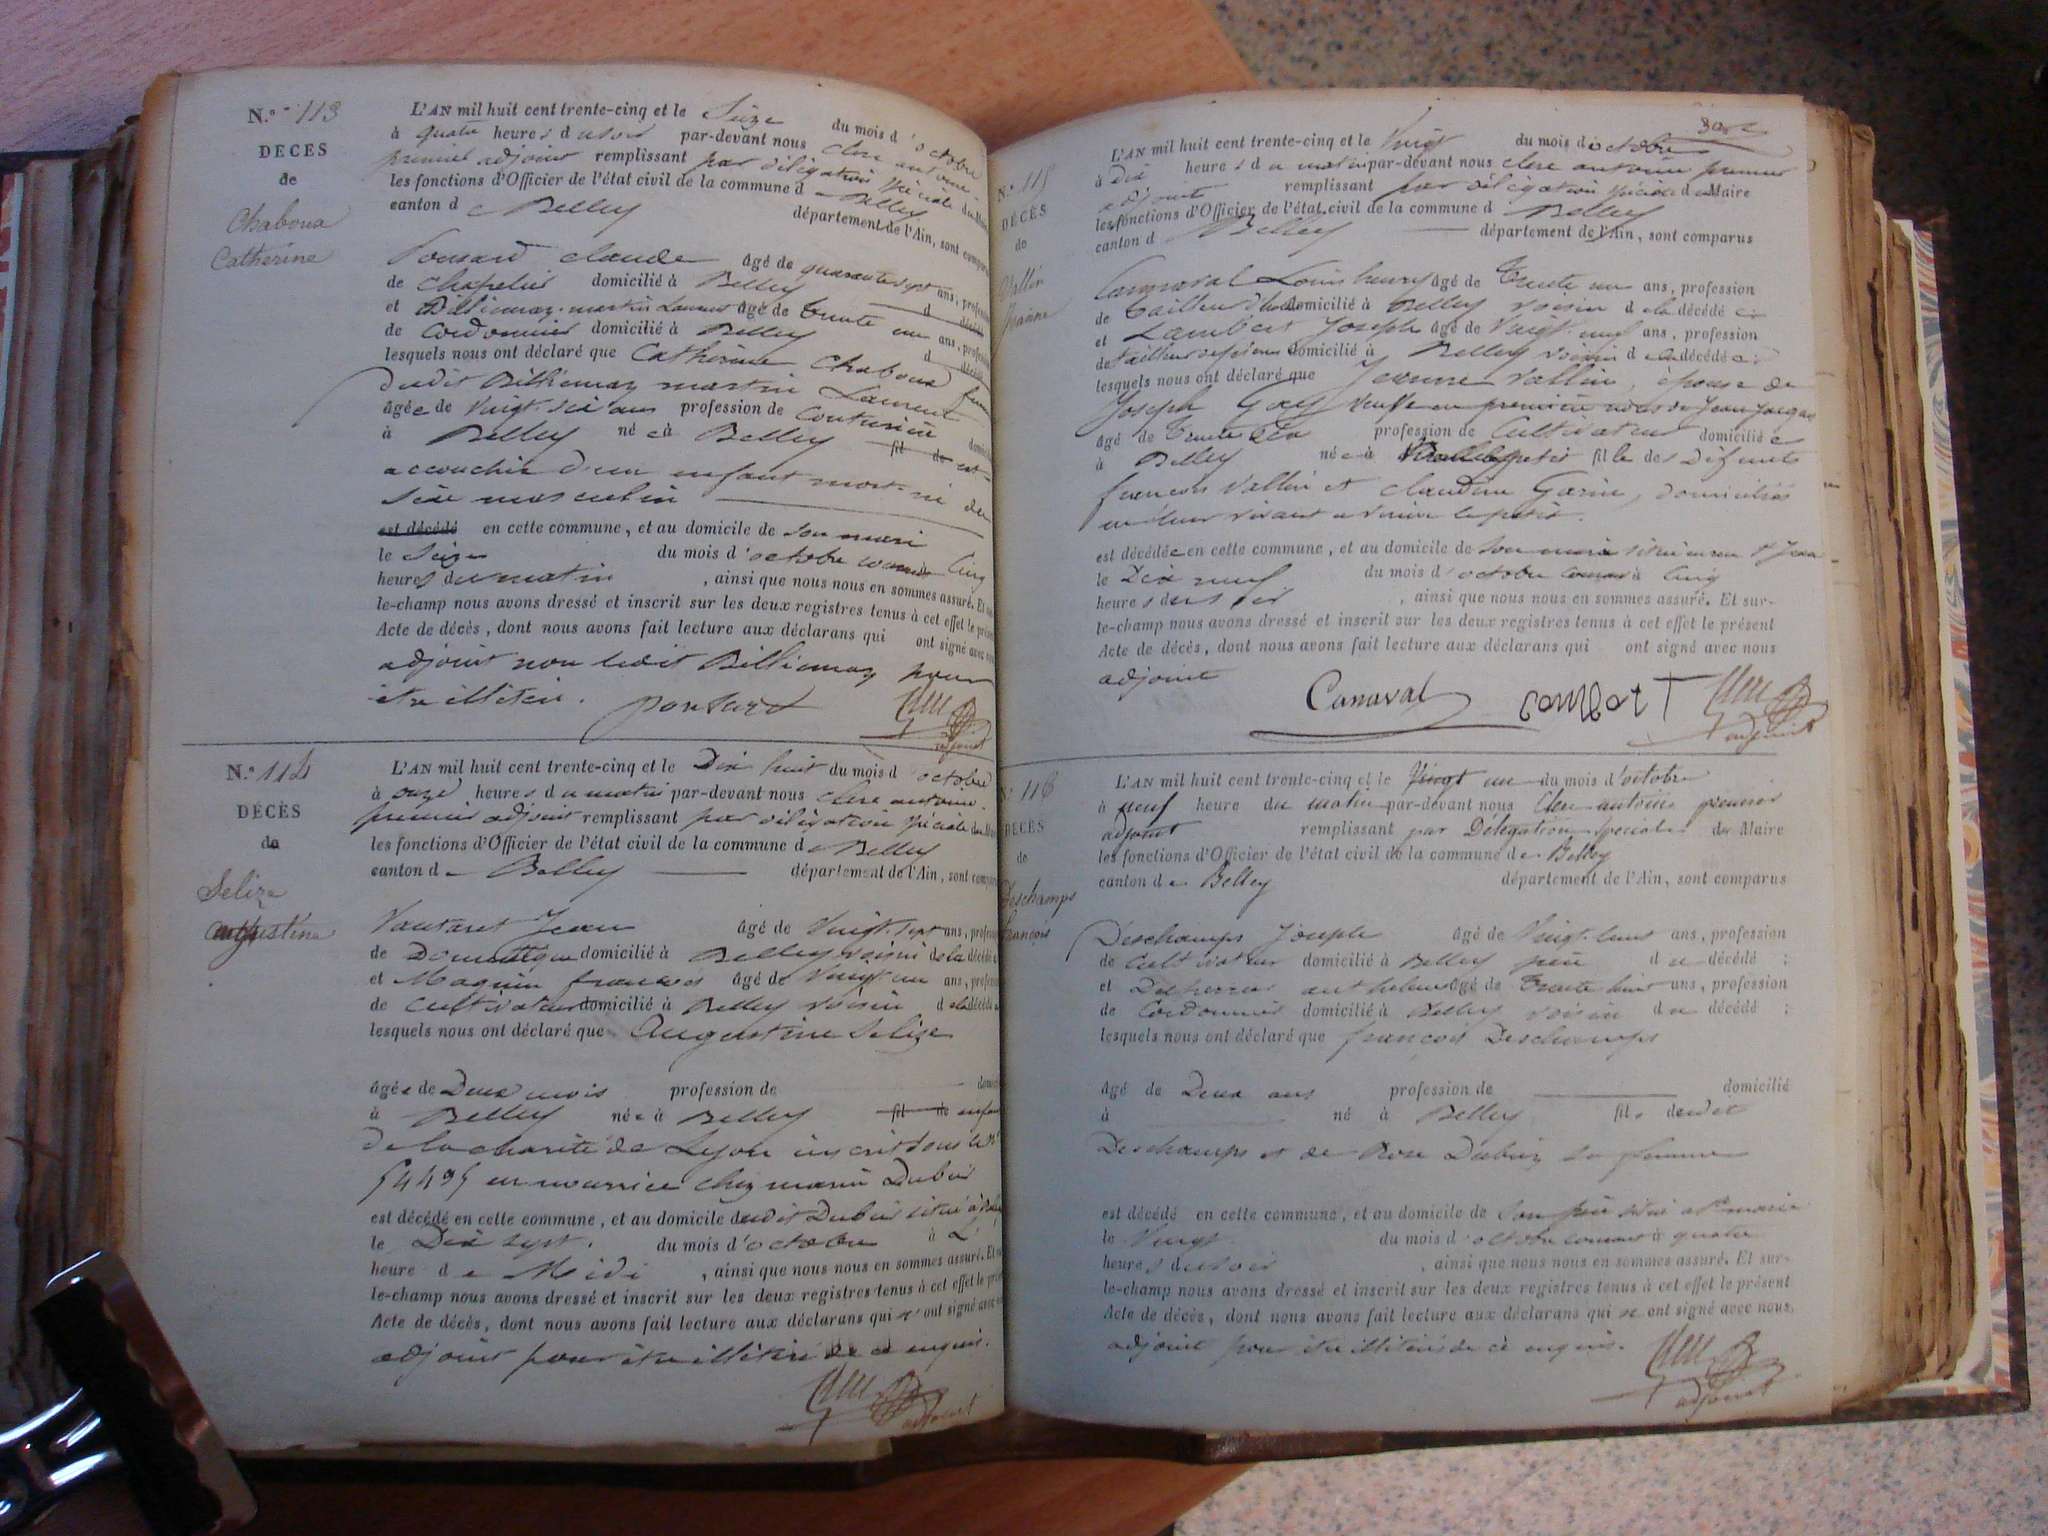 N.º 113
DECES
de
Chaboud
Catherine
L'AN mil huit cent trente-cinq et le Seize du mois d'octobre
à quatre heures du soir par-devant nous clerc antoine
premier adjoint remplissant par délégation spéciale du
les fonctions d'Officier de l'état civil de la commune de Belley
canton de Belley département de l'Ain, sont comparus
Ponsard Claude âgé de quarante sept ans, profession
de chapelier domicilié à Belley
et Billiemaz martin Laurent âgé de trente un ans, profession
de Cordonnier domicilié à Belley
lesquels nous ont déclaré que Catherine Chaboud femme
dudit Billiemaz martin Laurent
âgée de vingt six ans profession de couturière
à Belley née à Belley fil de est
accouchée d'un enfant mort-né du
sexe masculin
est décédé en cette commune, et au domicile de son mari
le Seize du mois d'octobre courant Cinq
heures du matin, ainsi que nous nous en sommes assuré. Et sur-
le-champ nous avons dressé et inscrit sur les deux registres tenus à cet effet le présent
Acte de décès, dont nous avons fait lecture aux déclarans qui ont signé avec nous
adjoint non ledit Billiemaz pour
être illitéré. ponsard
adjoint
N.º 114
DÉCÈS
de
Selize
augustine
L'AN mil huit cent trente-cinq et le Dix huit du mois d'octobre
à onze heures du matin par-devant nous clerc antoine
premier adjoint remplissant par délégation spéciale du
les fonctions d'Officier de l'état civil de la commune de Belley
canton de Belley département de l'Ain, sont comparus
Vautaret Jean âgé de Vingt-sept ans, profession
de Domestique domicilié à Belley voisin de la décédée
et Magnin françois âgé de Vingt un ans, profession
de cultivateur domicilié à Belley voisin de la décédée
lesquels nous ont déclaré que Augustine Selize
âgée de Deux mois profession de
à Belley née à Belley fil de enfant
de la charité de Lyon inscrit sous le n.º
54495 en nourrice chez marin Dubuis
est décédé en cette commune, et au domicile dudit Dubuis situé à
le Dix sept du mois d'octobre à L'
heure de Midi, ainsi que nous nous en sommes assuré. Et sur-
le-champ nous avons dressé et inscrit sur les deux registres tenus à cet effet le présent
Acte de décès, dont nous avons fait lecture aux déclarans qui n'ont signé avec nous
adjoint pour être illitérés de ce enquis.
adjoint
N.º 115
DÉCÈS
de
Vallin
Jeanne
L'AN mil huit cent trente-cinq et le Vingt du mois d'octobre
à dix heures du matin par-devant nous clerc antoine premier
adjoint remplissant par délégation spéciale du Maire
les fonctions d'Officier de l'état civil de la commune de Belley
canton de Belley département de l'Ain, sont comparus
Louis henry âgé de Trente un ans, profession
de Tailleur domicilié à Belley voisin de la décédée;
et Lambert Joseph âgé de Vingt-neuf ans, profession
de Tailleur domicilié à Belley voisin de la décédée;
lesquels nous ont déclaré que Jeanne Vallin, épouse de
Joseph Goy veuve en première noces de Jean Jacques
âgé de Trente six profession de Cultivateur domiciliée
à Belley née à fille des Défunts
francois Vallin et Claudine Garin, domiciliés
en leur vivant a le petit.
est décédée en cette commune, et au domicile de son mari situé en rue St Jean
le Dix neuf du mois d'octobre courant à Cinq
heures du soir, ainsi que nous nous en sommes assuré. Et sur-
le-champ nous avons dressé et inscrit sur les deux registres tenus à cet effet le présent
Acte de décès, dont nous avons fait lecture aux déclarans qui ont signé avec nous
adjoint Canaval Lambert
adjoint
N.º 116
DÉCÈS
de
Deschamps
francois
L'AN mil huit cent trente-cinq et le Vingt un du mois d'octobre
à neuf heure du matin par-devant nous Clerc antoine premier
adjoint remplissant par Délégation spéciale du Maire
les fonctions d'Officier de l'état civil de la commune de Belley
canton de Belley département de l'Ain, sont comparus
Deschamps Joseph âgé de Vingt-huit ans, profession
de Cultivateur domicilié à Belley père du décédé;
et anthelme âgé de Trente huit ans, profession
de Cordonnier domicilié à Belley voisin du décédé;
lesquels nous ont déclaré que françois Deschamps
âgé de Deux ans profession de domicilié
à né à Belley fils dudit
Deschamps et de Rose Dubiez sa femme
est décédé en cette commune, et au domicile de son père situé a Ste marie
le Vingt du mois d'octobre courant à quatre
heures du soir, ainsi que nous nous en sommes assuré. Et sur-
le-champ nous avons dressé et inscrit sur les deux registres tenus à cet effet le présent
Acte de décès, dont nous avons fait lecture aux déclarans qui n'ont signé avec nous,
adjoint pour être illitérés de ce enquis.
adjoint